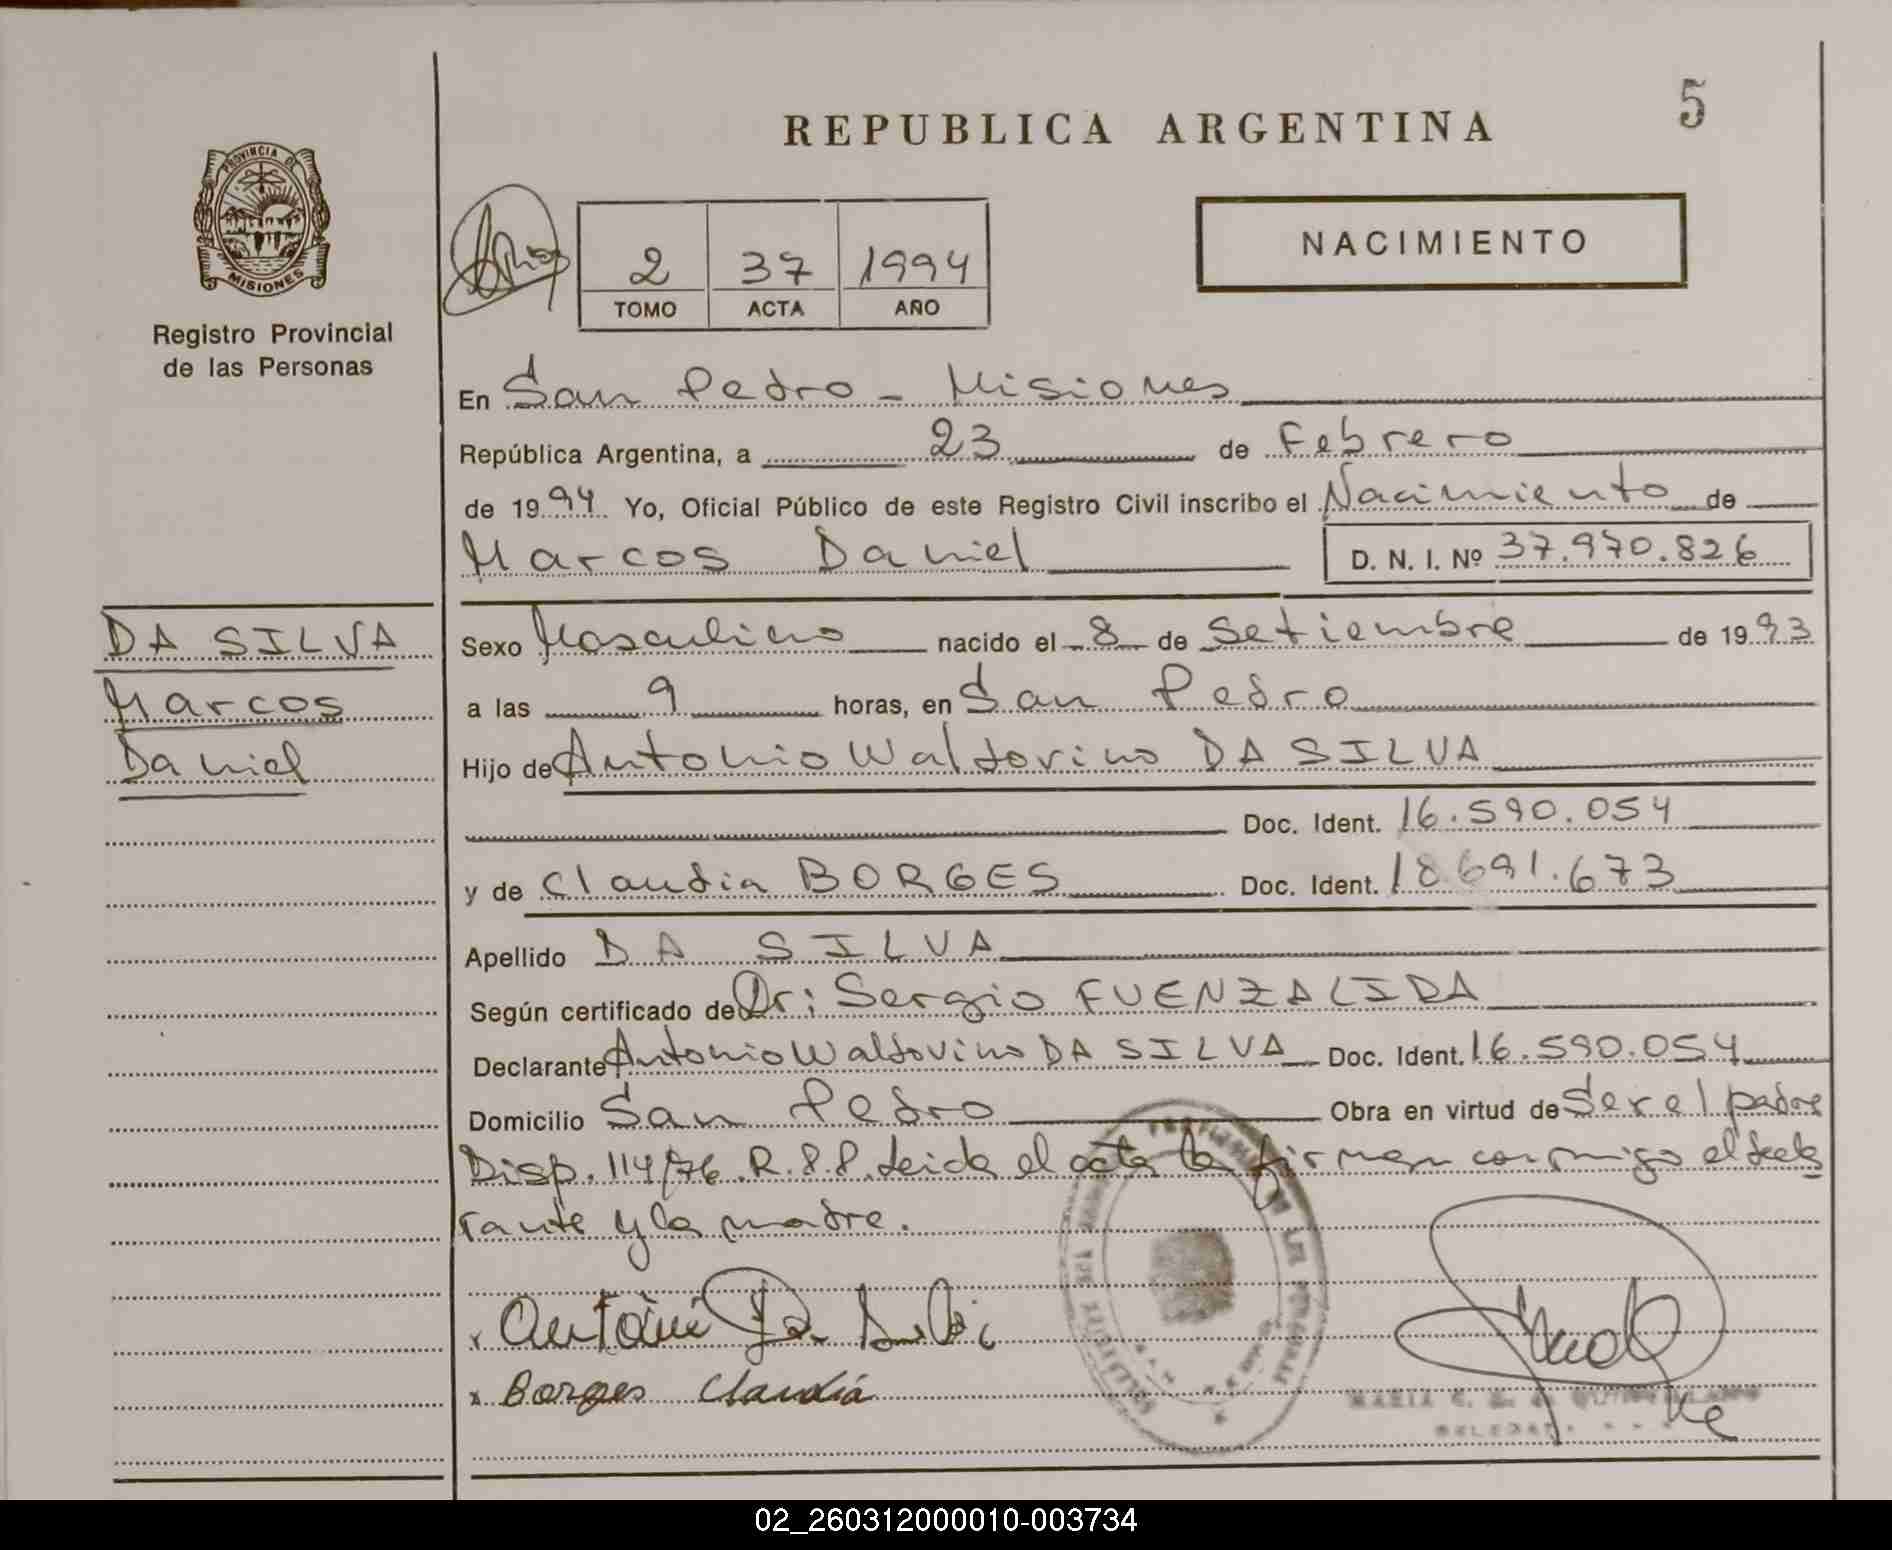 5
REPUBLICA ARGENTINA
PROVINCIA DE
MISIONES
Registro Provincial
de las Personas
2 37 1994
TOMO ACTA AÑO
NACIMIENTO
En San Pedro - Misiones
República Argentina, a 23 de Febrero
de 1994 Yo, Oficial Público de este Registro Civil inscribo el Nacimiento de
Marcos Daniel D. N. I. Nº 37.970.826
DA SILVA
Marcos
Daniel
Sexo Masculino nacido el 8 de Setiembre de 1993
a las 9 horas, en San Pedro
Hijo de Antonio Waldovino DA SILVA
Doc. Ident. 16.590.054
y de Claudia BORGES Doc. Ident. 18.691.673
Apellido DA SILVA
Según certificado de Dr: Sergio FUENZALIDA
Declarante Antonio Waldovino DA SILVA Doc. Ident. 16.590.054
Domicilio San Pedro Obra en virtud de Ser el padre
Disp. 114/76. R.P.P. Leida el acta la firman conmigo el decla
rante y la madre.
x Antonio Da Silva
x Borges Claudia
MARIA C.
02_260312000010-003734